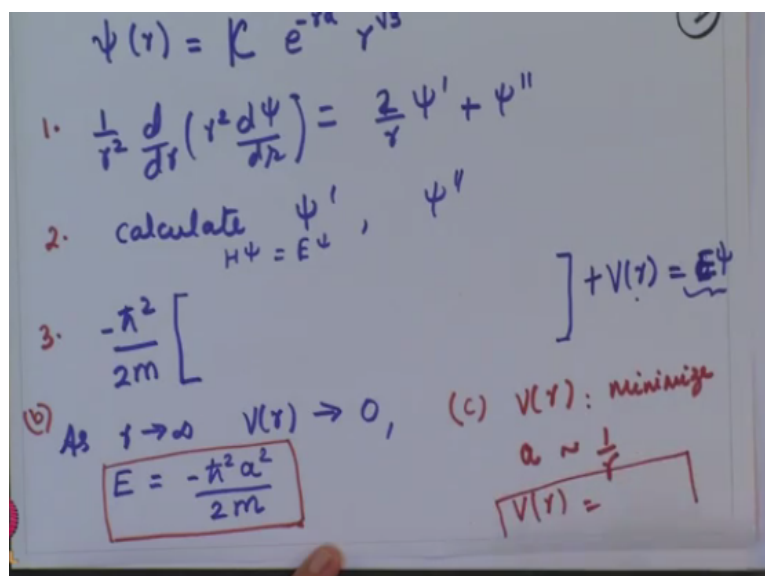 ψ(r) = K e^{-ra} r^{√3}
1. 1/r² d/dr (r² dψ/dr) = 2/r ψ' + ψ''
2. calculate ψ', ψ''
Hψ = Eψ
3. -ħ²/2m [ ] + V(r) = Eψ
(b) As r → ∞ V(r) → 0,
E = -ħ²a²/2m
(c) V(r): minimize
a ~ 1/r
V(r) =